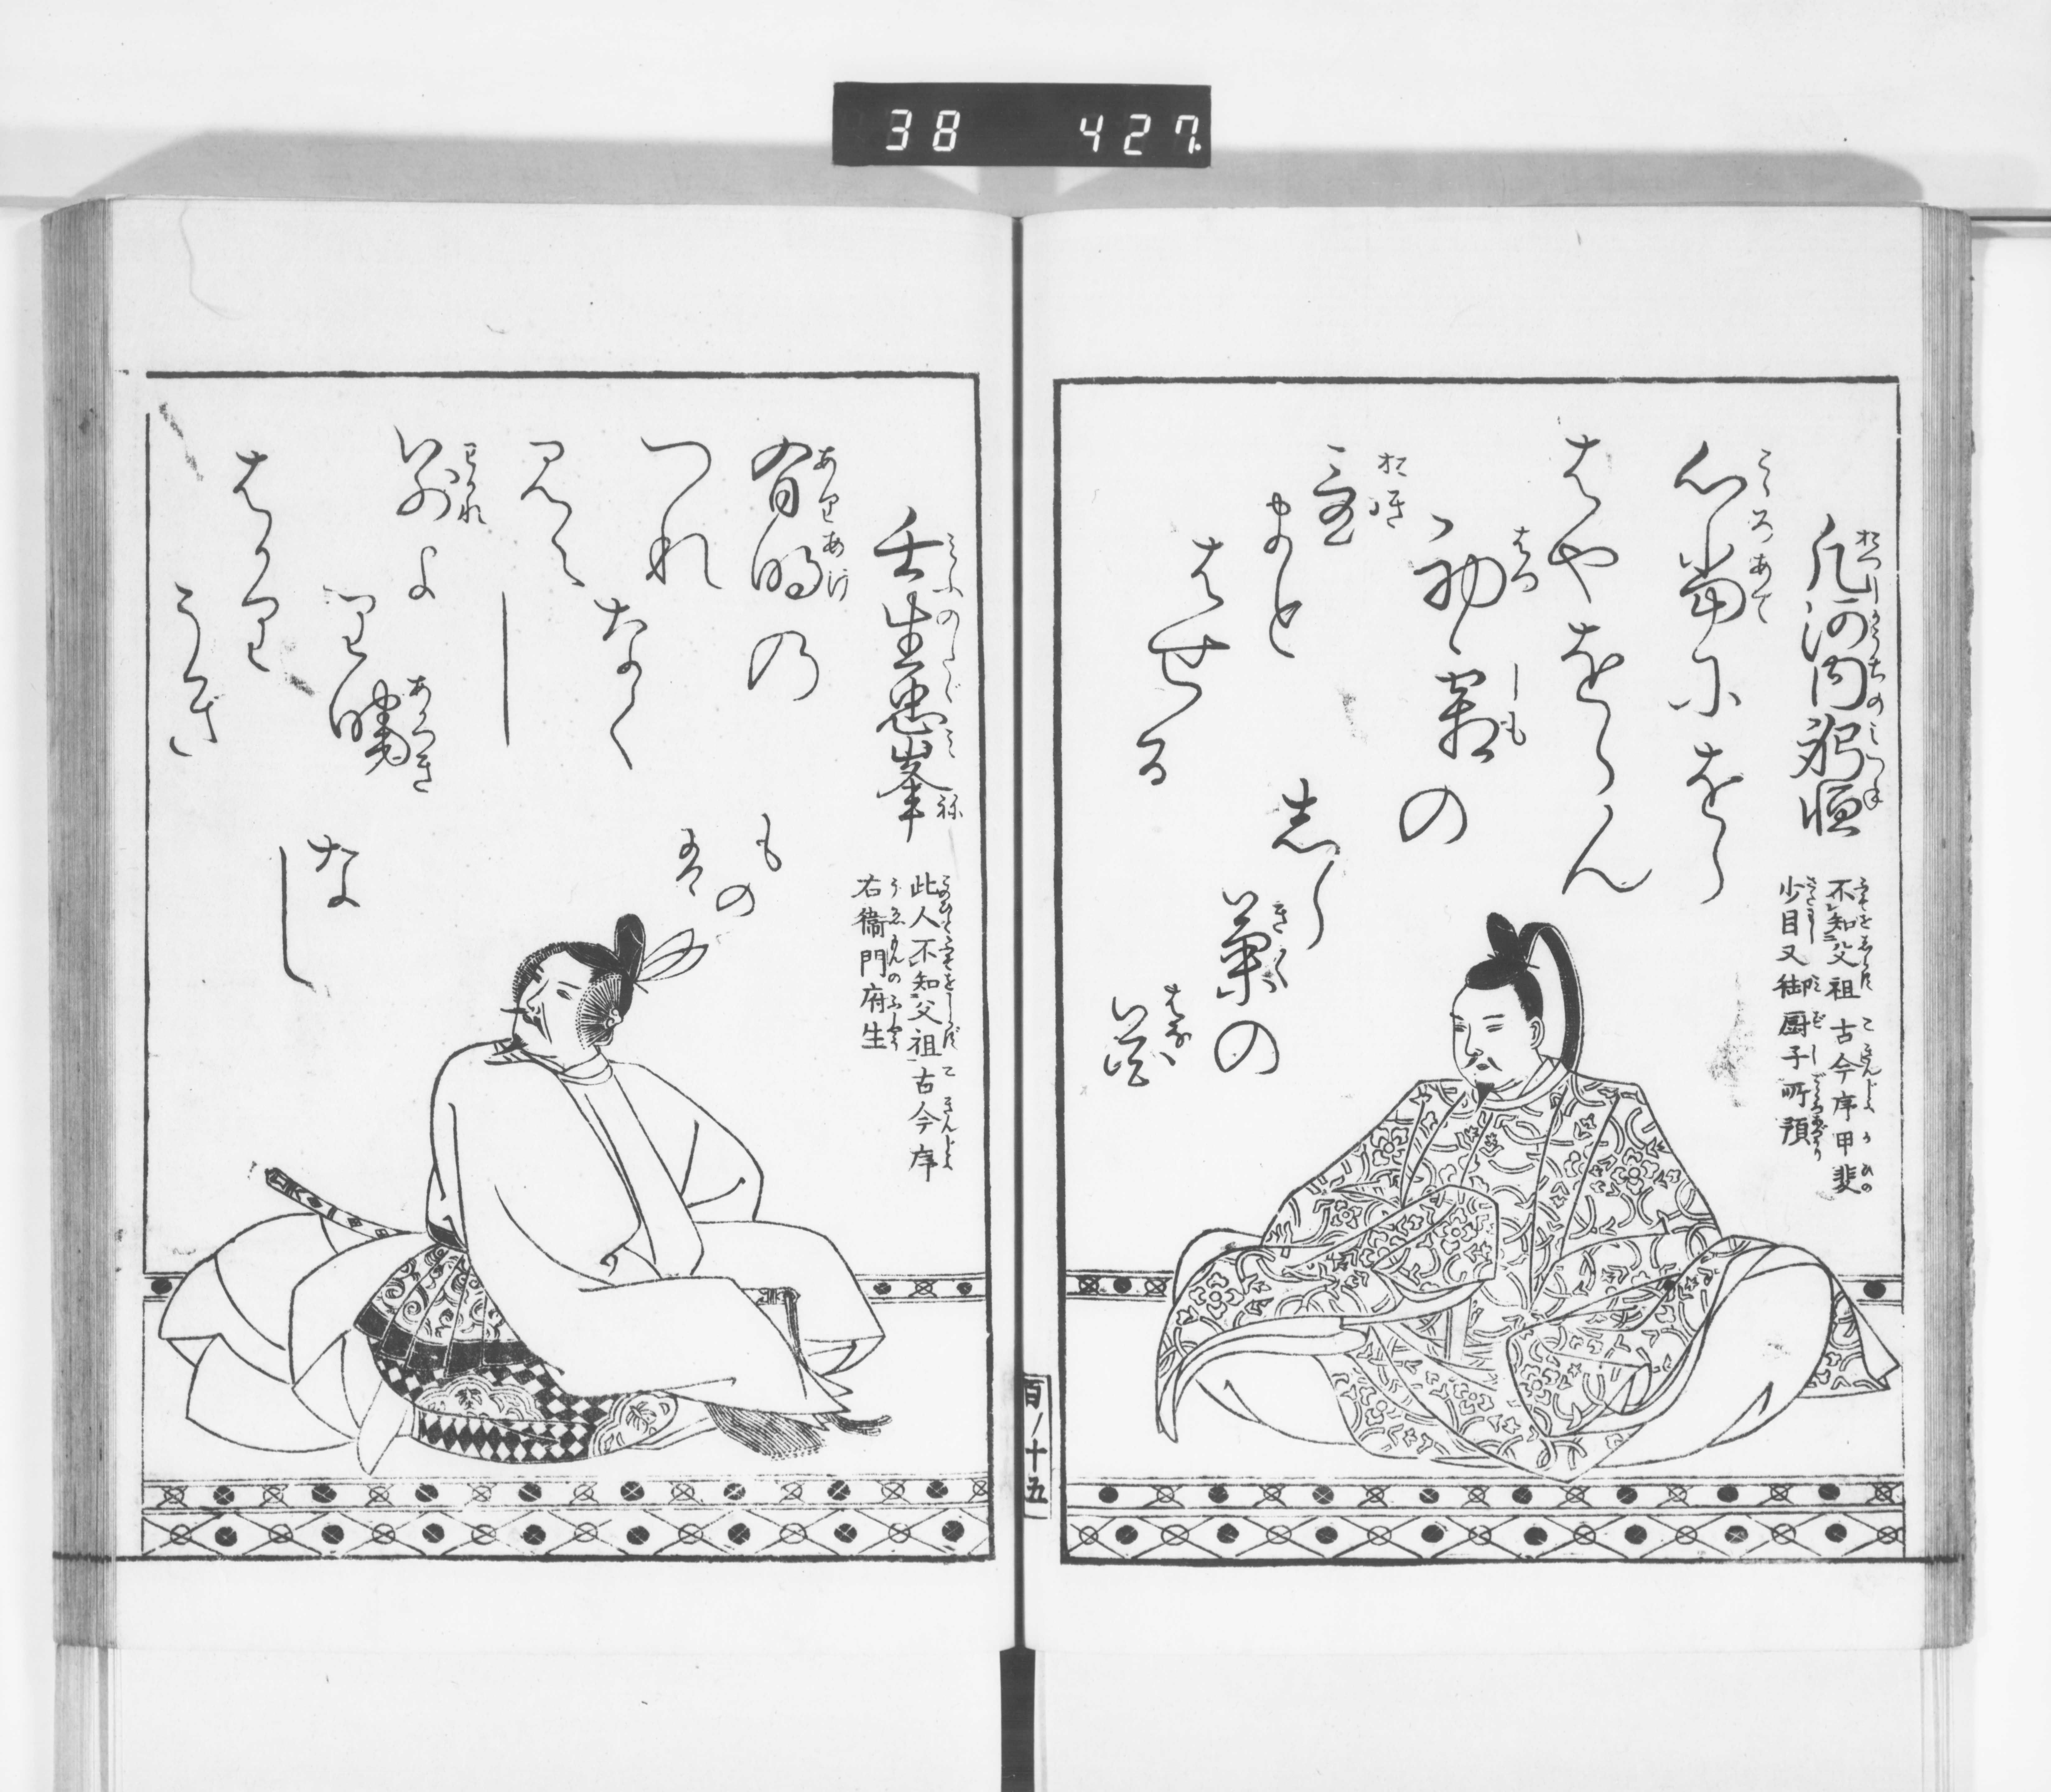 38 427
凡河内躬恒
不知父祖 古今序甲斐
少目又御厨子所預
心当にをら
はやをらん
初霜の
置
まと
はせる
しら
菊の
花
百ノ十五
壬生忠峯
此人不知父祖古今序
右衛門府生
有明の
つれ
なく
見えし
別よ
り暁
はかり
うき
もの
は
なし